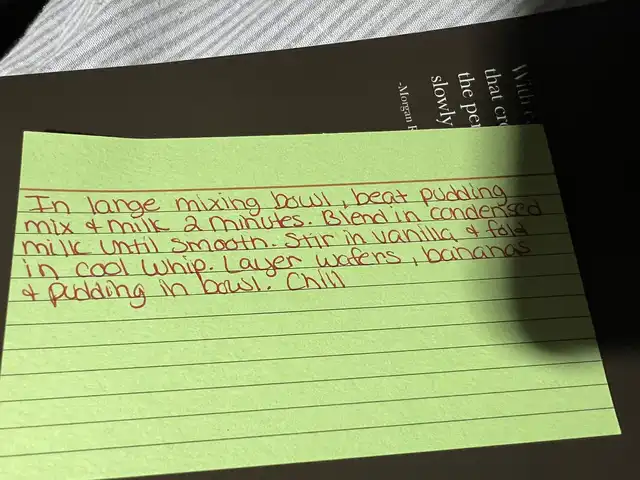 In large mixing bowl, beat pudding
mix & milk 2 minutes. Blend in condensed
milk until smooth. Stir in vanilla & fold
in cool whip. Layer wafers, bananas
& pudding in bowl. Chill
that
the
slowly
-Morgan